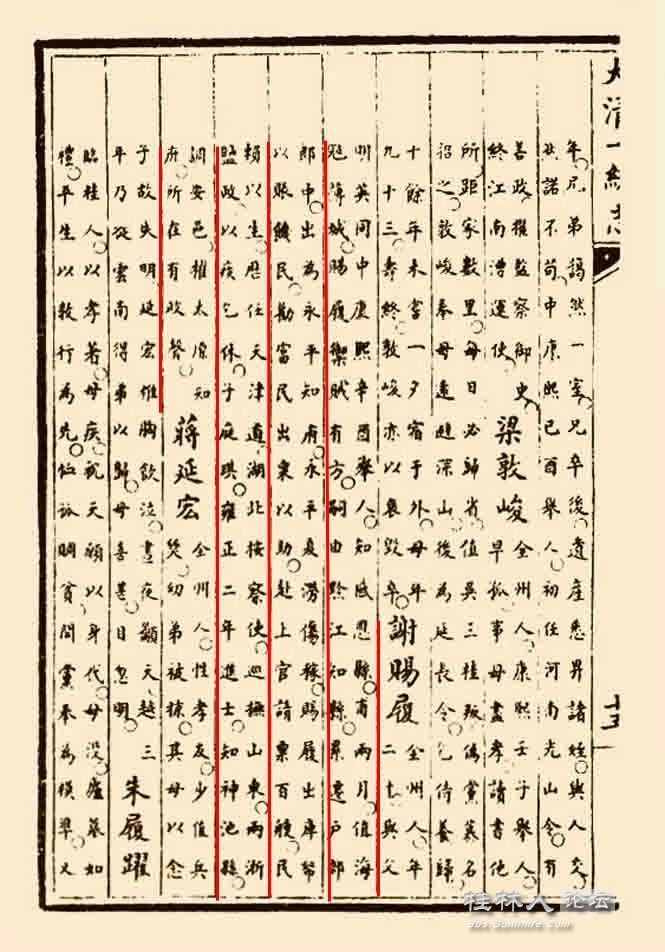 大清一統志
十五
年凡弟譪然一室兄卒後遺產悉畀諸姪與人交
然諾不苟中康熙己酉舉人初任河南光山令有
善政擢監察御史
終江南漕運使
梁敦峻
全州人康熙壬子舉人
早孤事母盡孝讀書他
所距家數里每日必歸省值吳三桂叛偽黨慕名
招之敦峻奉母遠避深山後為延長令乞侍養歸
十餘年未嘗一夕宿于外母年
九十三壽終敦峻亦以哀毀卒
謝賜履
全州人年
二七與父
明英同中康熙辛酉舉人知咸恩縣甫兩月值海
冦薄城賜履禦賊有方嗣由黔江知縣累遷戶部
郎中出為永平知府永平夏澇傷稼賜履出庫帑
以賑饑民勸富民出粟以助赴上官請票百艘民
賴以生歷任天津道湖北按察使巡撫山東兩浙
鹽政以疾乞休子庭琪雍正二年進士知神池縣
調安邑擢太原知
府所在有政聲
蔣延宏
全州人性孝友少值兵
燹幼弟被掠其母以念
子故失明延宏椎胸飲泣晝夜籲天越三
年乃從雲南得弟以歸母喜甚目忽明
朱履躍
臨桂人以孝著母疾祝天願以身代母沒廬墓如
禮平生以敦行為先恤孤賙貧閭黨奉為模準又
桂林人论坛
bbs.Guilinlife.com